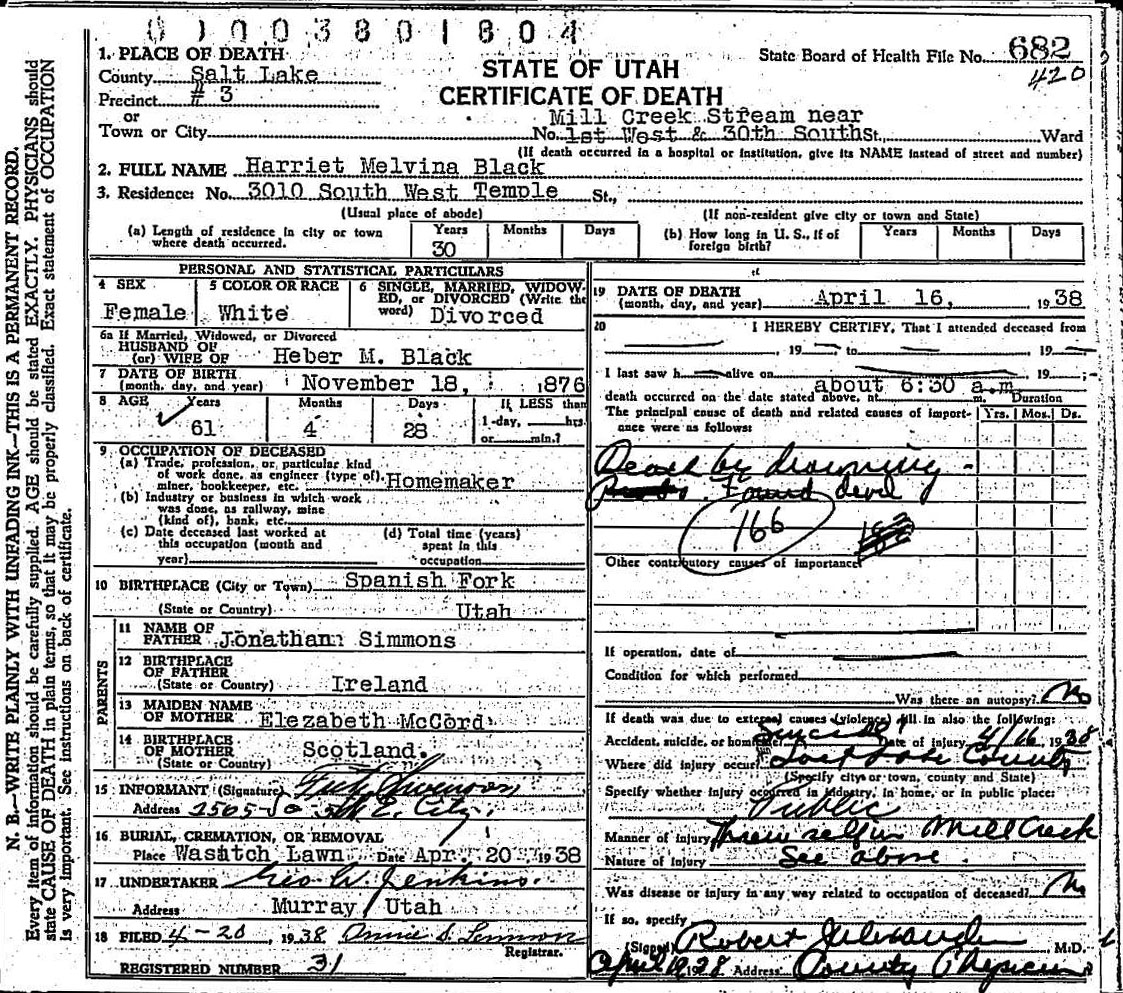 0 1 0 0 3 8 0 1 8 0 4
1. PLACE OF DEATH
County Salt Lake
Precinct # 3
or
Town or City
STATE OF UTAH
CERTIFICATE OF DEATH
State Board of Health File No. 682
420
Mill Creek Stream near
No. 1st West & 30th South St., Ward
(If death occurred in a hospital or institution, give its NAME instead of street and number)
2. FULL NAME Harriet Melvina Black
3. Residence: No. 3010 South West Temple St.,
(Usual place of abode) (If non-resident give city or town and State)
(a) Length of residence in city or town where death occurred. Years 30 Months Days
(b) How long in U. S., if of foreign birth? Years Months Days
N. B.—WRITE PLAINLY WITH UNFADING INK—THIS IS A PERMANENT RECORD.
Every item of information should be carefully supplied. AGE should be stated EXACTLY. PHYSICIANS should
state CAUSE OF DEATH in plain terms, so that it may be properly classified. Exact statement of OCCUPATION
is very important. See instructions on back of certificate.
PERSONAL AND STATISTICAL PARTICULARS
4 SEX Female
5 COLOR OR RACE White
6 SINGLE, MARRIED, WIDOWED, or DIVORCED (Write the word) Divorced
6a If Married, Widowed, or Divorced
HUSBAND OF
(or) WIFE OF Heber M. Black
7 DATE OF BIRTH
(month, day, and year) November 18, 1876
8 AGE Years 61 Months 4 Days 28 If LESS than
1-day, hrs.
or min.?
9 OCCUPATION OF DECEASED
(a) Trade, profession, or, particular kind
of work done, as engineer (type of),
miner, bookkeeper, etc. Homemaker
(b) Industry or business in which work
was done, as railway, mine
(kind of), bank, etc.
(c) Date deceased last worked at
this occupation (month and
year)
(d) Total time (years)
spent in this
occupation
10 BIRTHPLACE (City or Town) Spanish Fork
(State or Country) Utah
PARENTS
11 NAME OF
FATHER Jonathan Simmons
12 BIRTHPLACE
OF FATHER
(State or Country) Ireland
13 MAIDEN NAME
OF MOTHER Elezabeth McCord
14 BIRTHPLACE
OF MOTHER
(State or Country) Scotland.
15 INFORMANT (Signature)
Address 2505 So 5th E. City.
16 BURIAL, CREMATION, OR REMOVAL
Place Wasatch Lawn Date Apr. 20 1938
17 UNDERTAKER Geo W. Jenkins.
Address Murray, Utah
18 FILED 4-20, 1938 Annie S. Lennon
Registrar.
REGISTERED NUMBER 31
19 DATE OF DEATH
(month, day, and year) April 16, 1938
20 I HEREBY CERTIFY, That I attended deceased from
, 19 to , 19
I last saw h alive on , 19 ;
death occurred on the date stated above, at about 6:30 a.m m. Duration
The principal cause of death and related causes of importance were as follows: Yrs. Mos. Ds.
Death by drowning -
Found
166
Other contributory causes of importance:
If operation, date of
Condition for which performed
Was there an autopsy? No
If death was due to external causes (violence) fill in also the following:
Accident, suicide, or homicide? Suicide Date of injury 4/16, 1938
Where did injury occur? Salt Lake County
(Specify city or town, county and State)
Specify whether injury occurred in industry, in home, or in public place:
Public
Manner of injury Threw self in Mill Creek
Nature of Injury See above.
Was disease or injury in any way related to occupation of deceased? No
If so, specify
(Signed) Robert M.D.
April 1938 Address: County Physician